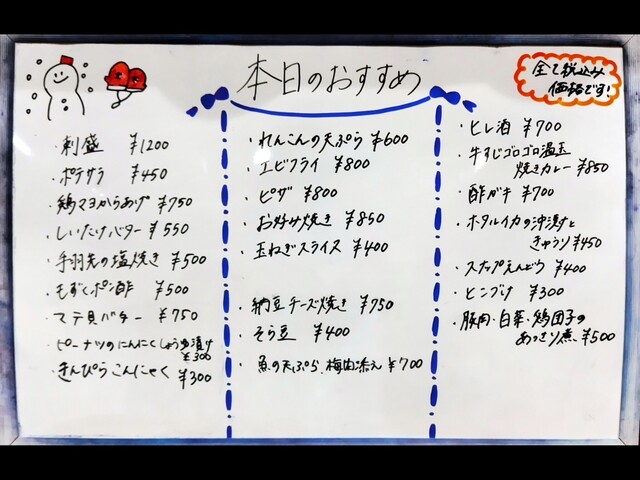 本日のおすすめ
全て税込み
価格です!
・刺盛 ¥1200
・ポテサラ ¥450
・鶏マヨからあげ ¥750
・しいたけバター ¥550
・手羽先の塩焼き ¥500
・もずくポン酢 ¥500
・マテ貝バター ¥750
・ピーナツのにんにくしょうゆ漬け
¥300
・きんぴらこんにゃく ¥300
・れんこんの天ぷら ¥600
・エビフライ ¥800
・ピザ ¥800
・お好み焼き ¥850
・玉ねぎスライス ¥400
・納豆チーズ焼き ¥750
・そら豆 ¥400
・魚の天ぷら、梅肉添え ¥700
・ヒレ酒 ¥700
・牛すじゴロゴロ温玉
焼きカレー ¥850
・酢ガキ ¥700
・ホタルイカの沖漬けと
きゅうり ¥450
・スナップえんどう ¥400
・とこづけ ¥300
・豚肉・白菜・鶏団子の
あっさり煮 ¥500